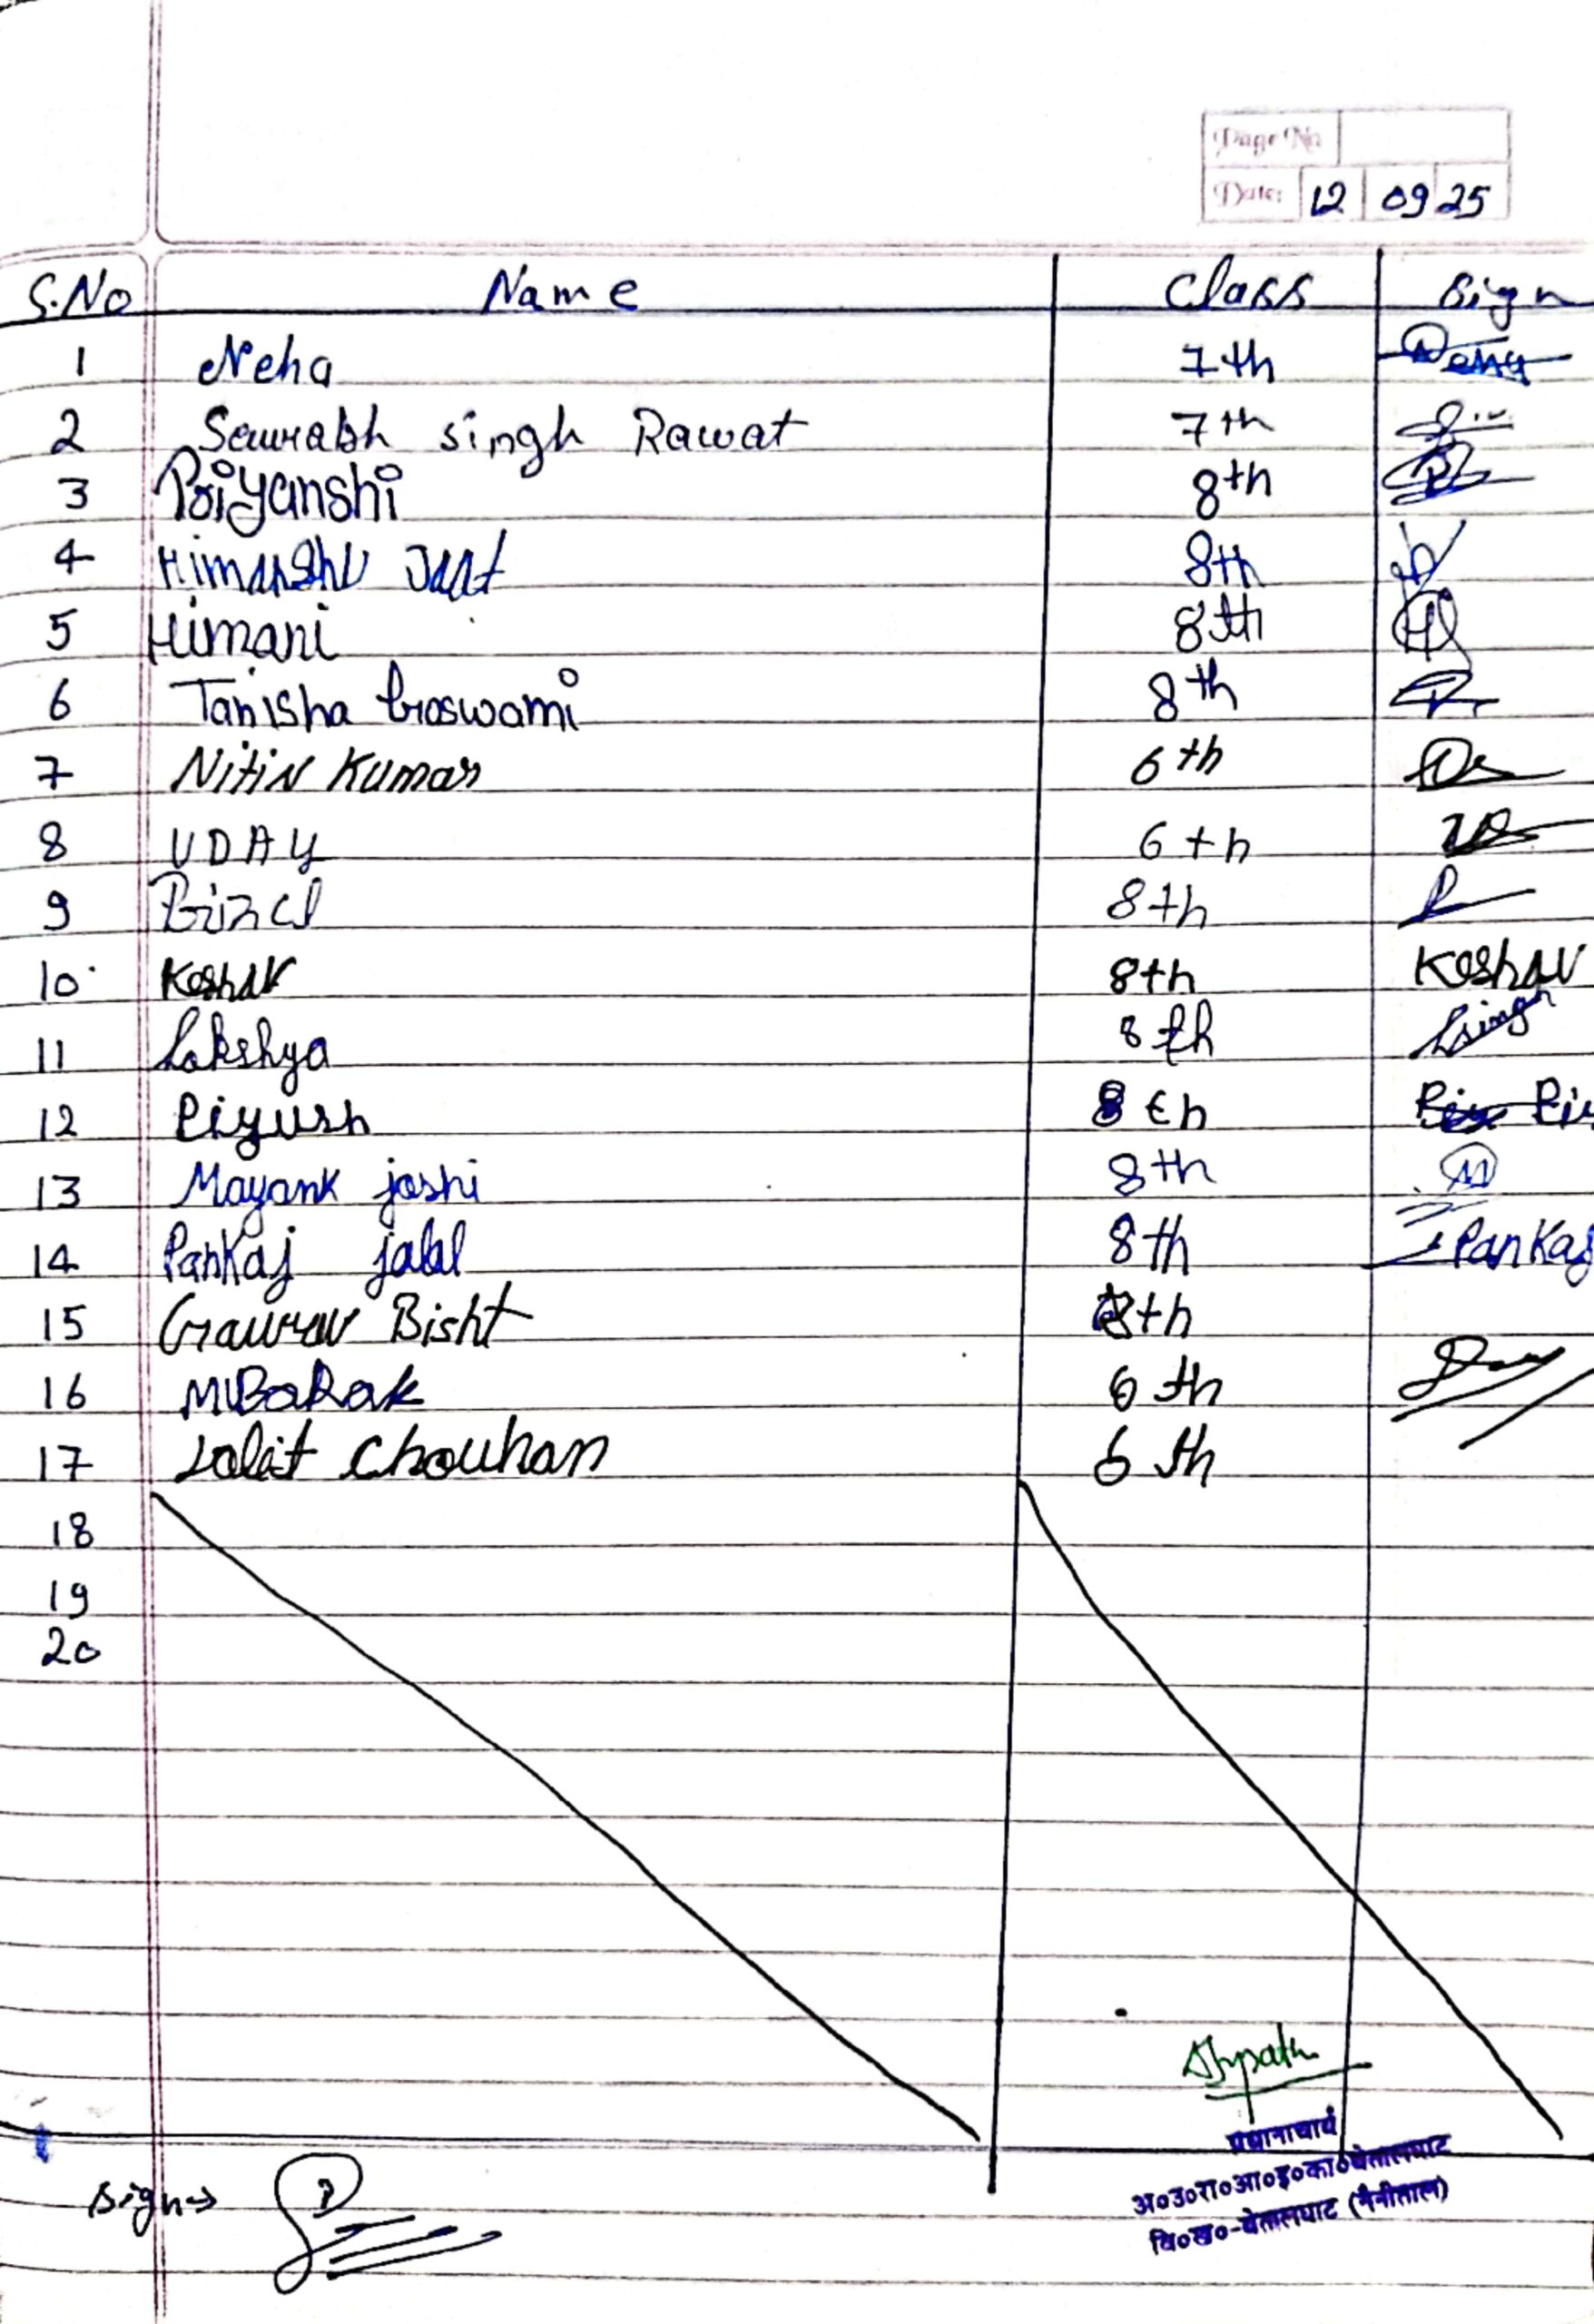 Page No
Date: 12 09 25
S.No Name Class Sign
1 Neha 7th
2 Saurabh singh Rawat 7th
3 Priyanshi 8th
4 Himanshu Jant 8th
5 Himani 8th
6 Tanisha Goswami 8th
7 Nitin Kumar 6th
8 UDAY 6th
9 8th
10 Keshav 8th Keshav
11 Lakshya 8th Lsingh
12 Piyush 8th
13 Mayank joshi 8th M
14 Pankaj jalal 8th Pankaj
15 Gaurav Bisht 8th
16 MUBaRak 6th
17 Lalit Chouhan 6th
18
19
20
प्रधानाचार्य
अ०उ०रा०आ०इ०का०बेतालघाट
वि०ख०-बेतालघाट (नैनीताल)
Sign→